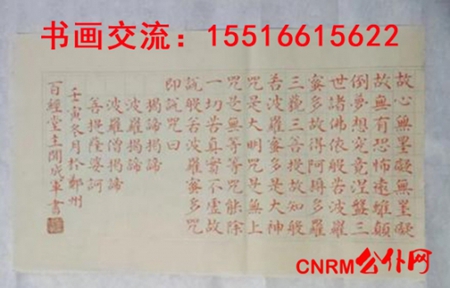 书画交流：15516615622
故心無罣礙無罣礙
故無有恐怖遠離顛
倒夢想究竟涅盤三
世諸佛依般若波羅
蜜多故得阿耨多羅
三藐三菩提故知般
若波羅蜜多是大神
咒是大明咒是無上
咒是無等等咒能除
一切苦真實不虛故
說般若波羅蜜多咒
即說咒曰
揭諦揭諦
波羅揭諦
波羅僧揭諦
菩提薩婆訶
壬寅冬月於鄭州
百經堂主成軍書
CNRM公仆网